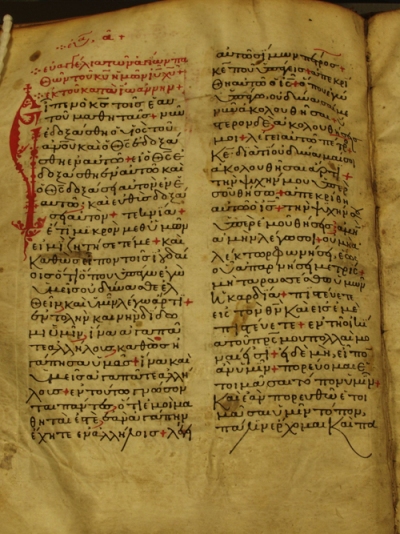 εὐαγγέλια τῶν ἁγίων πα
θῶν τοῦ κυ ἡμῶν ιυ χυ +
ἐκ τοῦ κατὰ ἰωάννην +
Εἶπεν ὁ κς τοῖς ἑαυ
τοῦ μαθηταῖς + νῦν
ἐδοξάσθη ὁ υἱὸς τοῦ
ἀνου καὶ ὁ θς ἐδοξά
σθη ἐν αὐτῶ + εἰ ὁ θς ἐ
δοξάσθη ἐν αὐτῶ καὶ
ὁ θς δοξάσει αὐτὸν ἐν ἑ
αυτῶ· καὶ εὐθὺς δοξά
σει αὐτόν + τεκνία +
ἔτι μικρὸν μεθ' ὑμῶν
εἰμι· ζητήσετέ με + καὶ
καθὼς εἶπον τοῖς ἰουδαί
οις ὅτι ὅπου ὑπάγω ἐγὼ
ὑμεῖς οὐ δύνασθε ἐλ
θεῖν καὶ ὑμῖν λέγω ἄρτι +
ἐντολὴν καινὴν δίδω
μι ὑμῖν, ἵνα ἀγαπᾶ
τε ἀλλήλους· καθὼς ἠ
γάπησα ὑμᾶς + ἵνα καὶ
ὑμεῖς ἀγαπᾶτε ἀλλή
λους + ἐν τούτω γνώσον
ται πάντες, ὅτι ἐμοὶ μα
θηταί ἐστε, ἐὰν ἀγάπην
ἔχητε ἐν ἀλλήλοις + λέγει
αὐτῶ σίμων πέτρος +
κε ποῦ ὑπάγεις + ἀπεκρί
θη αὐτῶ ὁ ις + ὅπου ἐγὼ
ὑπάγω, οὐ δύνασαί μοι
νῦν ἀκολουθῆσαι + ὕσ
τερον δὲ ἀκολουθήσεις
μοι + λέγει αὐτῶ πέτρος +
κε διατί οὐ δύναμαί σοι
ἀκολουθῆσαι ἄρτι +
τὴν ψυχήν μου ὑπὲρ
σοῦ θήσω + ἀπεκρίθη
αὐτῶ ὁ ις + τὴν ψυχήν σου
ὑπὲρ ἐμοῦ θήσεις + ἀμὴν
ἀμὴν λέγω σοι + οὐ μὴ ἀ
λέκτωρ φωνήσῃ, ἕως
οὗ ἀπαρνήσῃ με τρίς +
μὴ ταρασσέσθω ὑμῶν
ἡ καρδία + πιστεύετε
εἰς τὸν θν καὶ εἰς ἐμὲ
πιστεύετε + ἐν τῆ οἰκία
τοῦ πρς μου πολλαὶ μο
ναί εἰσι + εἰ δὲ μὴ, εἶπον
ἂν ὑμῖν + πορεύομαι ἑ
τοιμάσαι τόπον ὑμῖν +
καὶ ἐὰν πορευθῶ ἑτοι
μάσαι ὑμῖν τόπον,
πάλιν ἔρχομαι καὶ πα